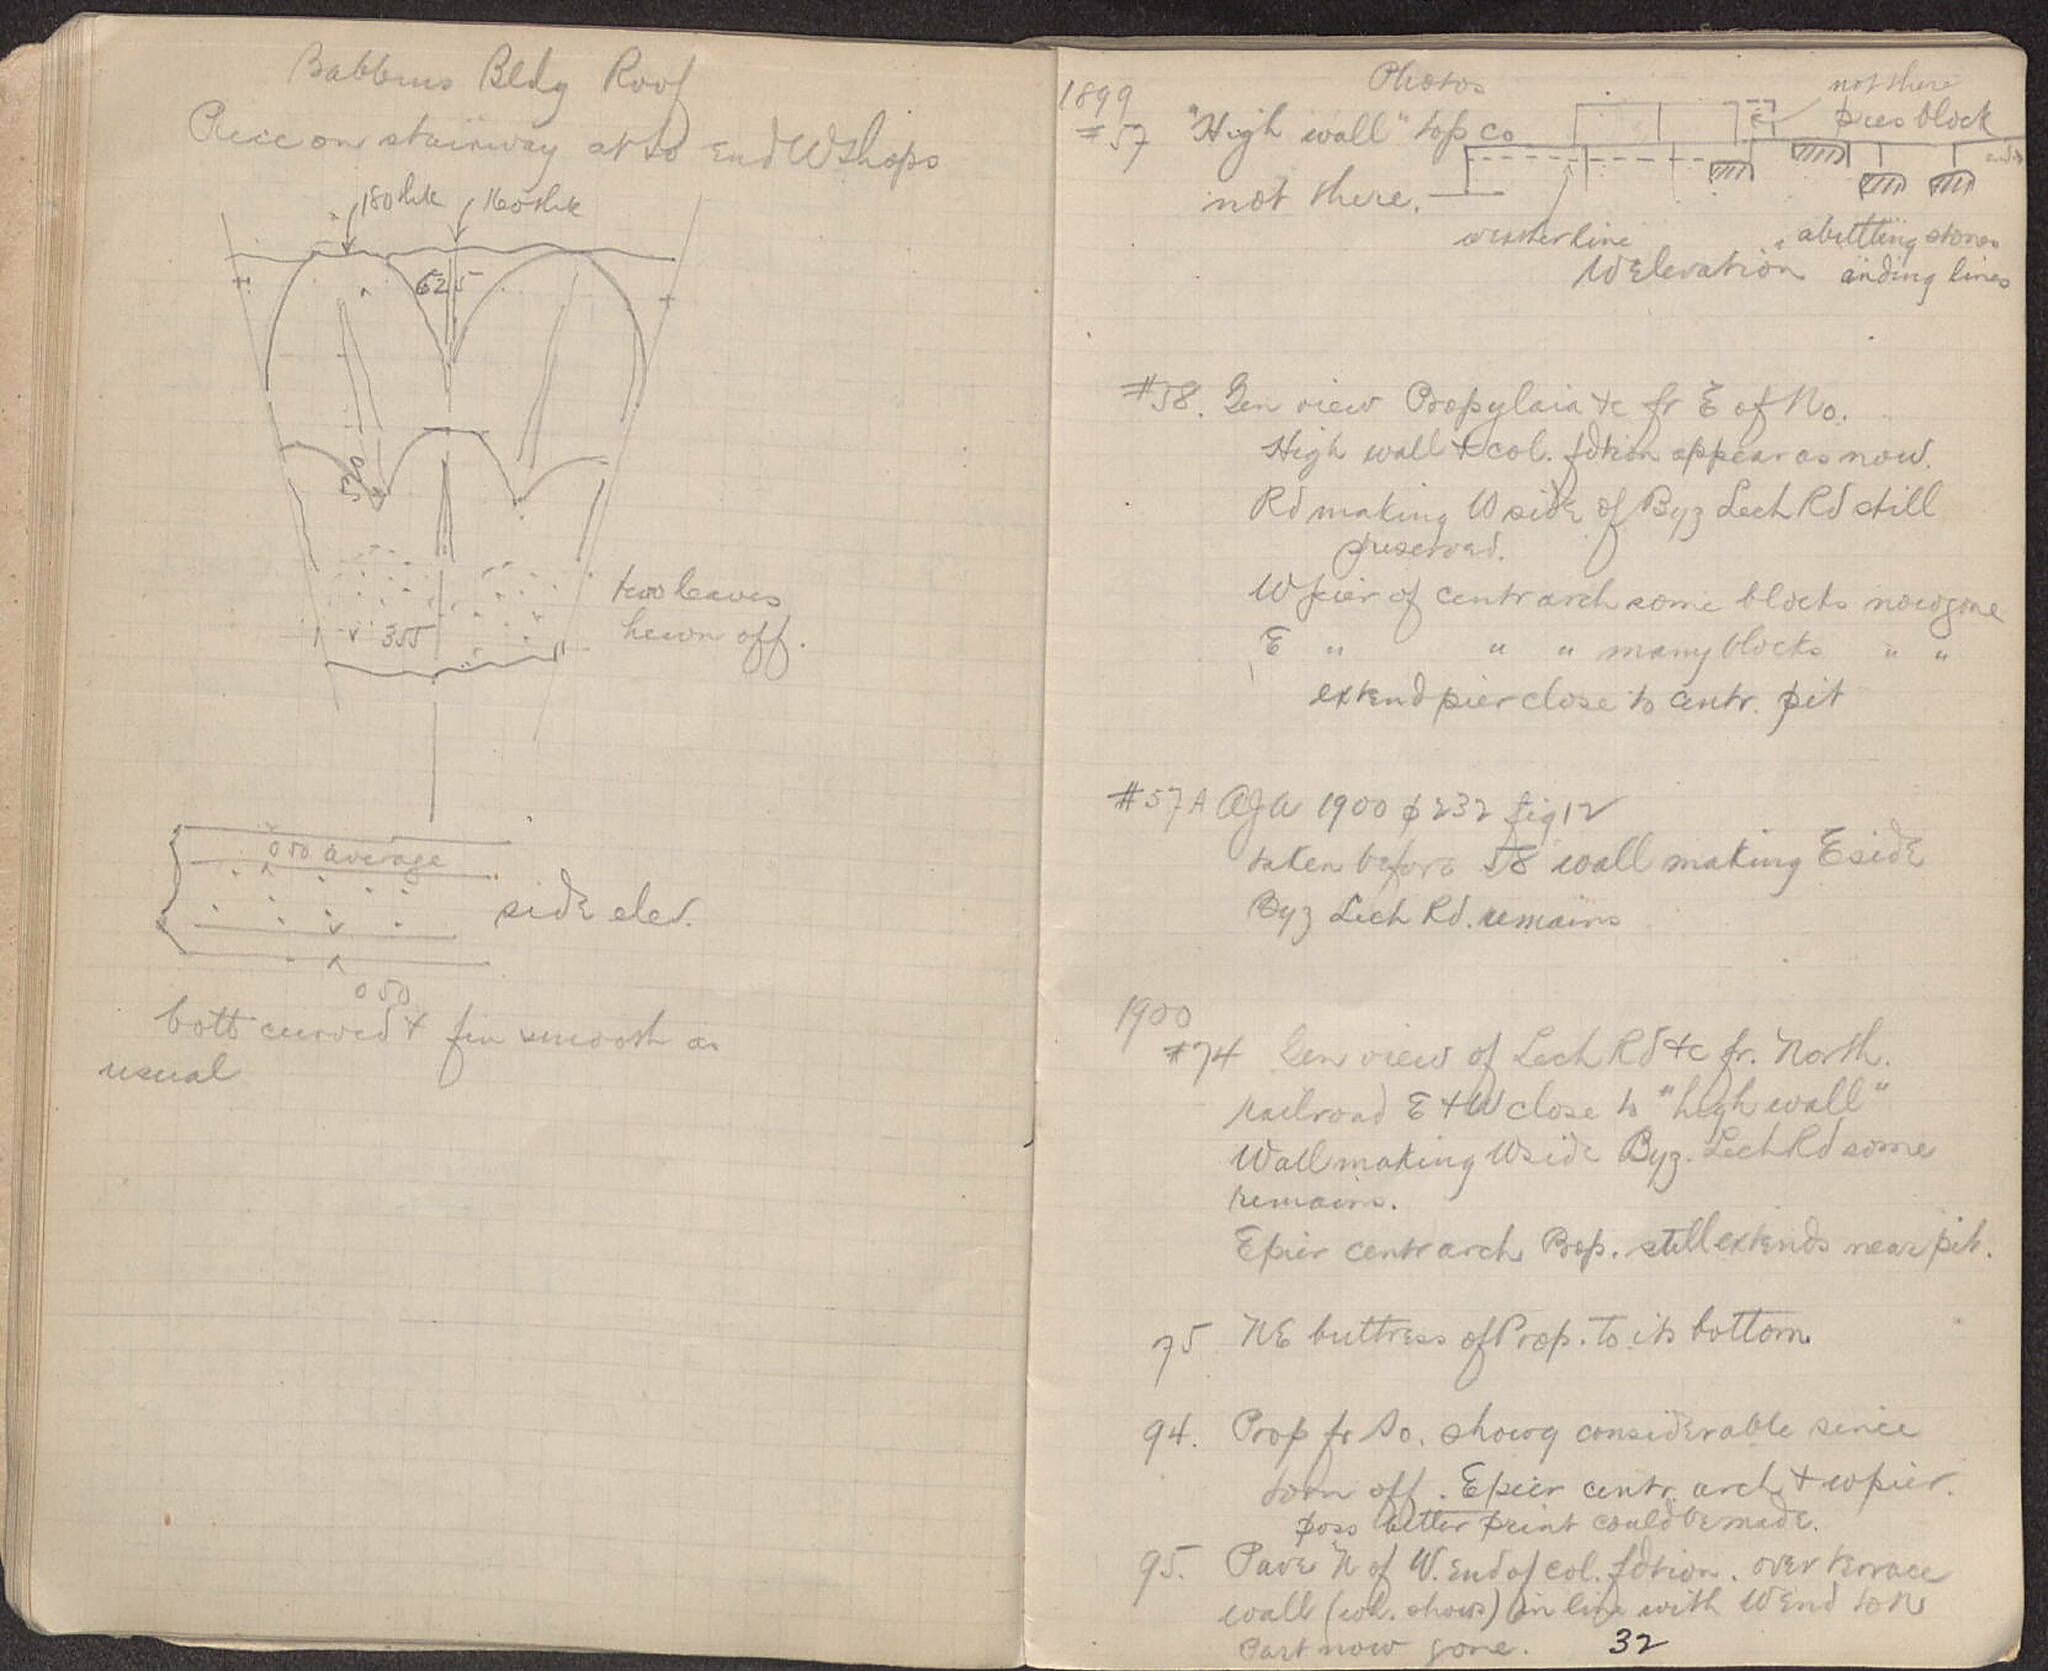 Babbius Bldg Roof
Piece on stairway at So End W Shops
180 thk 160 thk
625
070
355
two leaves
hewn off.
050 average
side elev.
050
bott curved & fin smooth as
usual
Photos
1899
#57 "High wall" top co
not there.
not there
pres block
weather line
W Elevation
abutting stones
& ending lines
#58. Gen view Propylaia &c fr E of No.
High wall & col. fdtion appear as now.
Rd making W side of Byz Lech Rd still
preserved.
W pier of centr arch some blocks now gone
E " " " many blocks " "
extend pier close to centr. pit
#57A AJA 1900 p 232 fig 12
taken before 58 wall making E side
Byz Lech Rd. remains
1900
#74 Gen view of Lech Rd &c fr. North.
railroad E & W close to "high wall"
Wall making W side Byz. Lech Rd some
remains.
E pier centr arch Prop. still extends near pit.
75 NE buttress of Prop. to its bottom
94. Prop fr So. showg considerable since
torn off. E pier centr. arch & w pier.
poss better print could be made.
95. Pave N of W. End of col. fdtion. over terrace
wall (wh. shows) in line with W End to N
Part now gone.
32